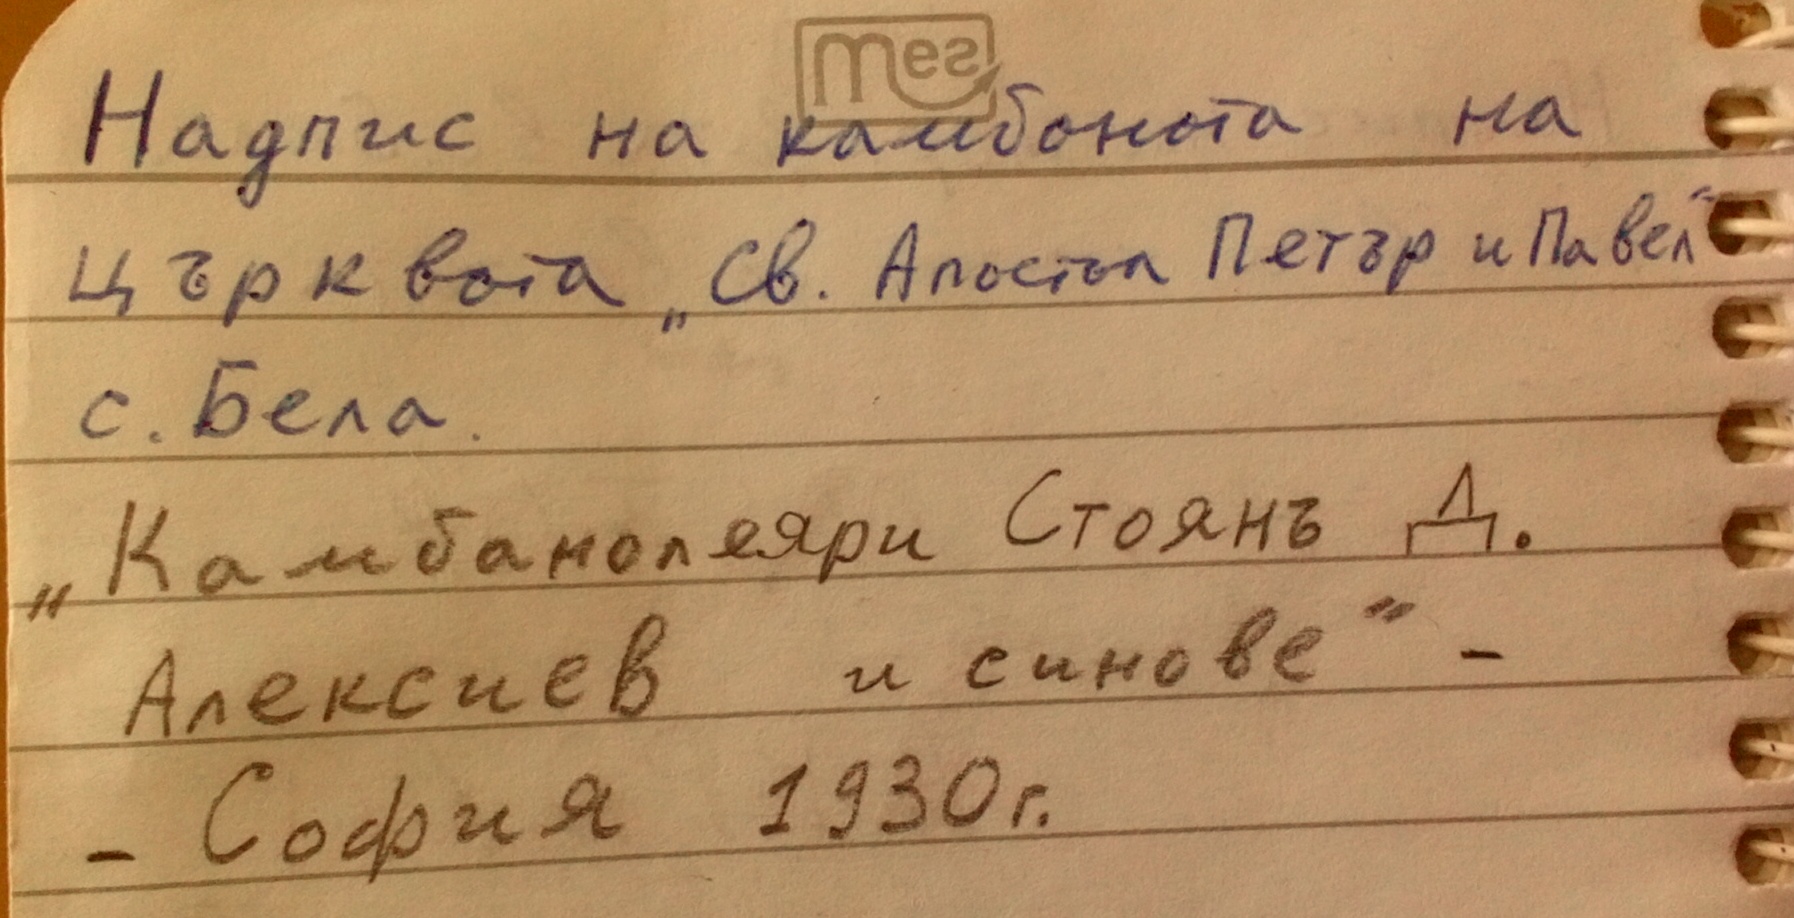 тег
Надпис на камбоната на
църквата „Св. Апостол Петър и Павел“
с. Бела.
„Камбанолеяри Стоянъ Д.
Алексиев и синове“ -
- София 1930г.